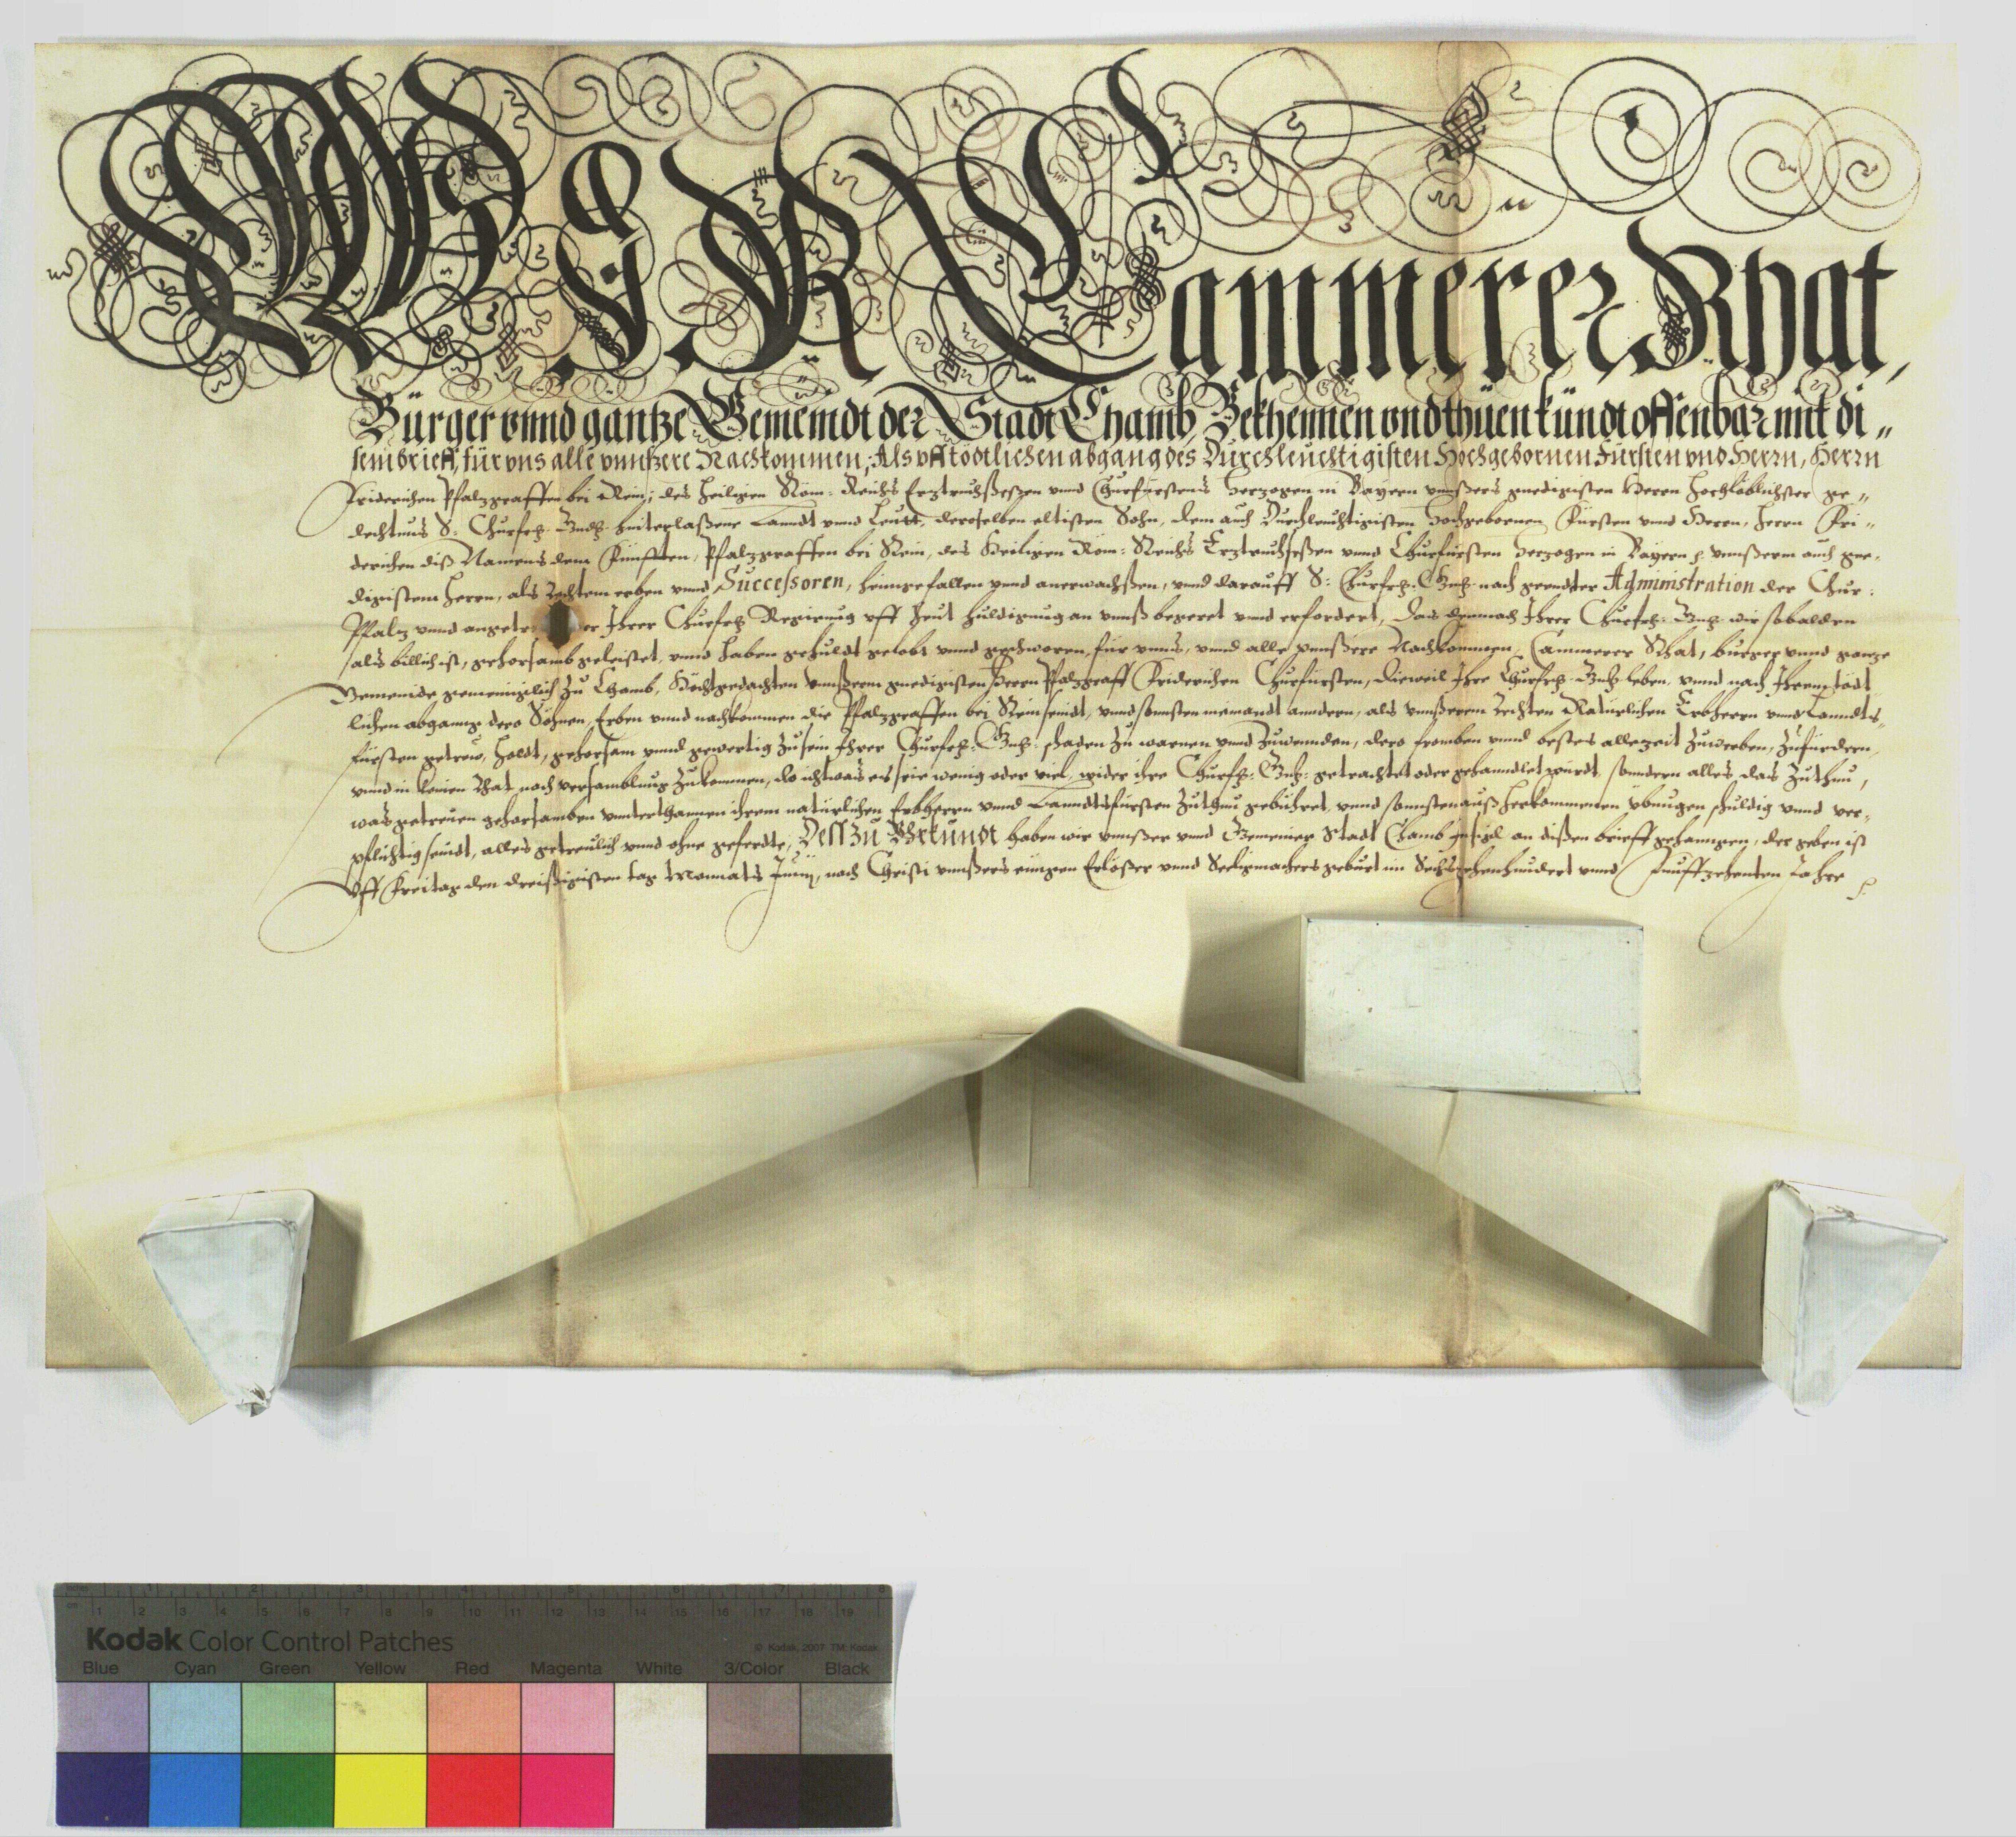 WIR Cammerer Rhat,
Bürger vnnd gantze Gemeindt der Stadt Chamb, Bekhennen vnd thüen kündt offenbar mit di„
sem brieff, für vns alle vnnßere Nachkommen, Als vff tödtlichen abgang des Durchleuchtigisten Hochgebornen Fürsten vnd Herrn, Herrn
Friderichen Pfalzgraffen bei Rein, des Heiligen Röm: Reichs Erztruchseßen vnnd Churfürstens Herzogen in Bayern vnnßers gnedigisten Herrn Hochlöblichster ge„
dechtnus S: Churfrh: Gndh: hinterlaßene Landt vnnd Leutt, deroselben eltisten Sohn, dem auch Durchleuchtigisten Hochgebornen Fürsten vnnd Herrn, Herrn Fri„
derichen diß Namens dem Fünfften, Pfalzgraffen bei Rein, des Heiligen Röm: Reichs Erztruchseßen vnnd Churfürsten Herzogen in Bayern vnnßerm auch gne„
digistem Herrn, als Rechtem erben vnnd Successoren, heimgefallen vnnd anerwachßen, vnnd darauff S: Churfrh: Gndh: nach geendter Administration der Chur:
Pfalz vnnd angetr er Ihrer Churfrh: Regirung vff Heut huldigung an vnnß begeret vnnd erfordert, das demnach Ihrer Churfrh: Gndh: wir sobalden
als billich ist, gehorsamb geleistet, vnnd haben gehuldt gelobt vnnd geschworen, für vnnß, vnnd alle vnnßere Nachkommen, Cammerer Rhat, bürger vnnd ganze
Gemeinde gemeiniglich zu Chamb, Höchstgedachten vnnßerm gnedigisten Herrn Pfalzgraff Friderichen Churfürsten, Dieweil Ihre Churfrh: Gndh: leben, vnnd nach Ihrem tödt
lichen abgang dero Söhnen, Erben vnnd nachkommen die Pfalzgraffen bei Rein seindt, vnnd sonnsten niemandt anndern, als vnnßerem Rechten Natürlichen Erbherrn vnnd Lanndts„
fürsten getrew, holdt, gehorsam vnnd gewertig zu sein Ihrer Churfrh: Gndh: schaden zu warnen vnnd zuwennden, dero fromben vnnd bestes allezeit zuwerben, zufürdern,
vnnd in keinen Rhat noch versamblung zukommen, do ichtwas es seie wenig oder viel, wider ihre Churfrh: Gndh: getrachtet oder gehanndlet würdt, sonndern alles das zuthun,
was getreuen gehorsamben vnnterthannen ihrem natürlichen Erbherrn vnnd Lanndtsfürsten zuthun gebühret, vnnd sonnsten auß herkommenen übungen schuldig vnnd ver„
pflichtig seindt, alles getreulich vnnd ohne geferdte, Dess zu Vrkundt haben wir vnnßer vnnd Gemeiner Stadt Chamb Insigl an dißen brieff gehangen, der geben ist
Vff Freitag den dreißigisten tag Monnats Junij, nach Christi vnnßers einigen Erlößer vnnd Seeligmachers geburt im Sechszehenhundert vnnd Funffzehenten Jahre
1 2 3 4 5 6 7 8
1 2 3 4 5 6 7 8 9 10 11 12 13 14 15 16 17 18 19
Kodak Color Control Patches © Kodak, 2007 TM: Kodak
Blue Cyan Green Yellow Red Magenta White 3/Color Black